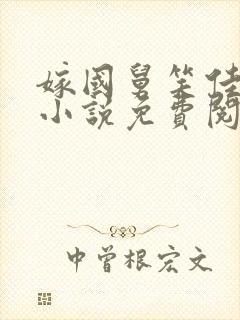 嫁國舅笑佳
小說免費閱
中曾根宏文